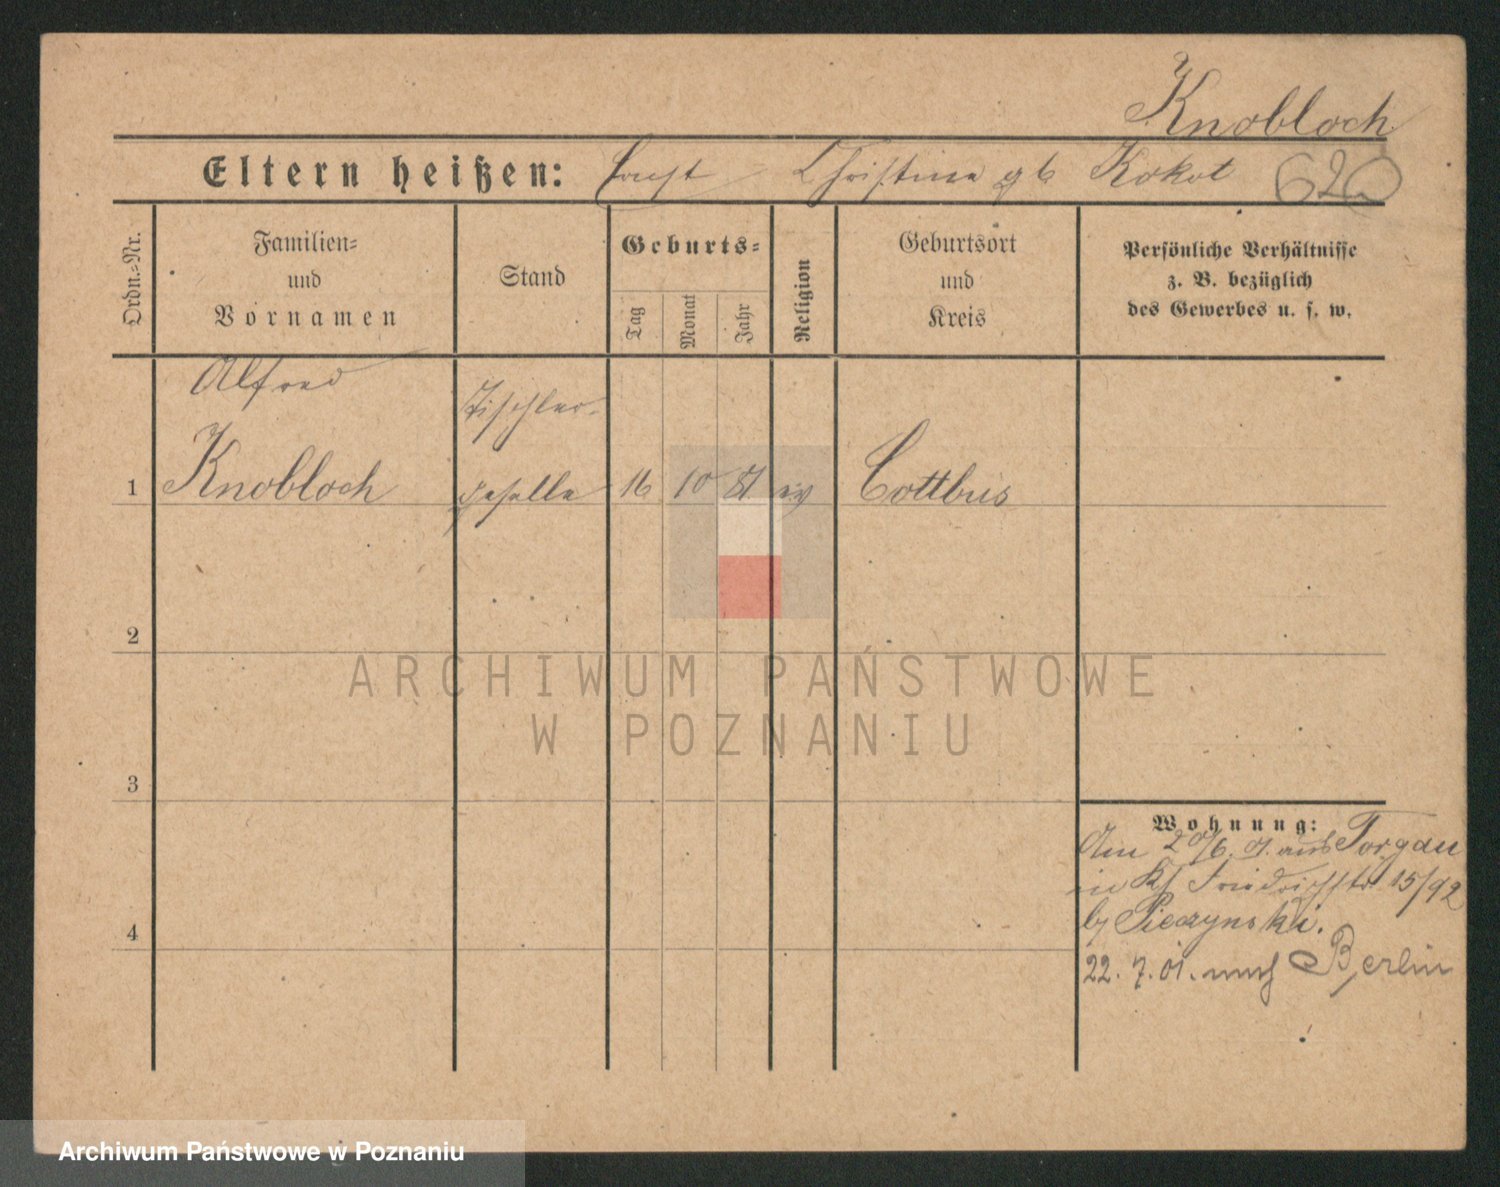 Knobloch
Eltern heißen: Ernst Christine gb Kokot 620
Ordn.=Nr.
Familien=
und
Vornamen
Stand
Geburts=
Tag
Monat
Jahr
Religion
Geburtsort
und
Kreis
Persönliche Verhältnisse
z. B. bezüglich
des Gewerbes u. s. w.
Alfred
Tischler-
1 Knobloch geselle 16 10 81 ev Cottbus
2
ARCHIWUM PAŃSTWOWE
W POZNANIU
3
Wohnung:
Am 20/6. 01. aus Torgau
in Friedrichstr 15/92
by Pieczynski.
4
22. 7. 01. nach Berlin
Archiwum Państwowe w Poznaniu